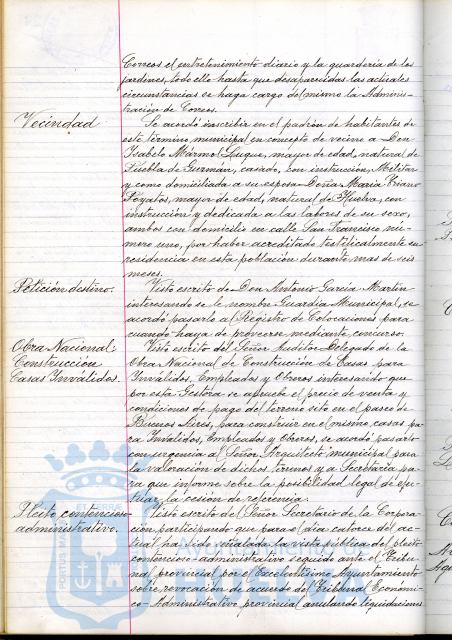 Correos el entretenimiento diario y la guardería de los
jardines, todo ello hasta que desaparecidas las actuales
circunstancias se haga cargo del mismo la Adminis-
tración de Correos.
Vecindad
Se acordó inscribir en el padrón de habitantes de
este término municipal en concepto de vecino a Don
Isabelo Mármol Luque, mayor de edad, natural de
Puebla de Guzmán, casado, con instrucción, Militar
y como domiciliada a su esposa Doña María Triano
Poyatos, mayor de edad, natural de Huelva, con
instrucción y dedicada a las labores de su sexo,
ambos con domicilio en calle San Francisco nú-
mero uno, por haber acreditado testificalmente su
residencia en esta población durante mas de seis
meses.
Petición destino.
Visto escrito de Don Antonio García Martín
interesando se le nombre Guardia Municipal, se
acordó pasarle al Registro de Colocaciones para
cuando haya de proveerse mediante concurso.
Obra Nacional:
Construcción
Casas Inválidos.
Visto escrito del Señor Auditor Delegado de la
Obra Nacional de Construcción de Casas para
Inválidos, Empleados y Obreros interesando que
por esta Gestora se apruebe el precio de venta y
condiciones de pago del terreno sito en el paseo de
Buenos Aires, para construir en el mismo casas pa-
ra Inválidos, Empleados y Obreros, se acordó pasarlo
con urgencia al Señor Arquitecto municipal para
la valoración de dichos terrenos y a Secretaría pa-
ra que informe sobre la posibilidad legal de efec-
tuar la cesión de referencia.
Pleito contencioso
administrativo.
Visto escrito del Señor Secretario de la Corpora-
ción participando que para el día catorce del ac-
tual ha sido señalada la vista pública del pleito
contencioso-administrativo seguido ante el Tribu-
nal provincial por el Excelentísimo Ayuntamiento
sobre revocación de acuerdo del Tribunal Económi-
co-Administrativo provincial anulando liquidaciones
Ayuntamiento de